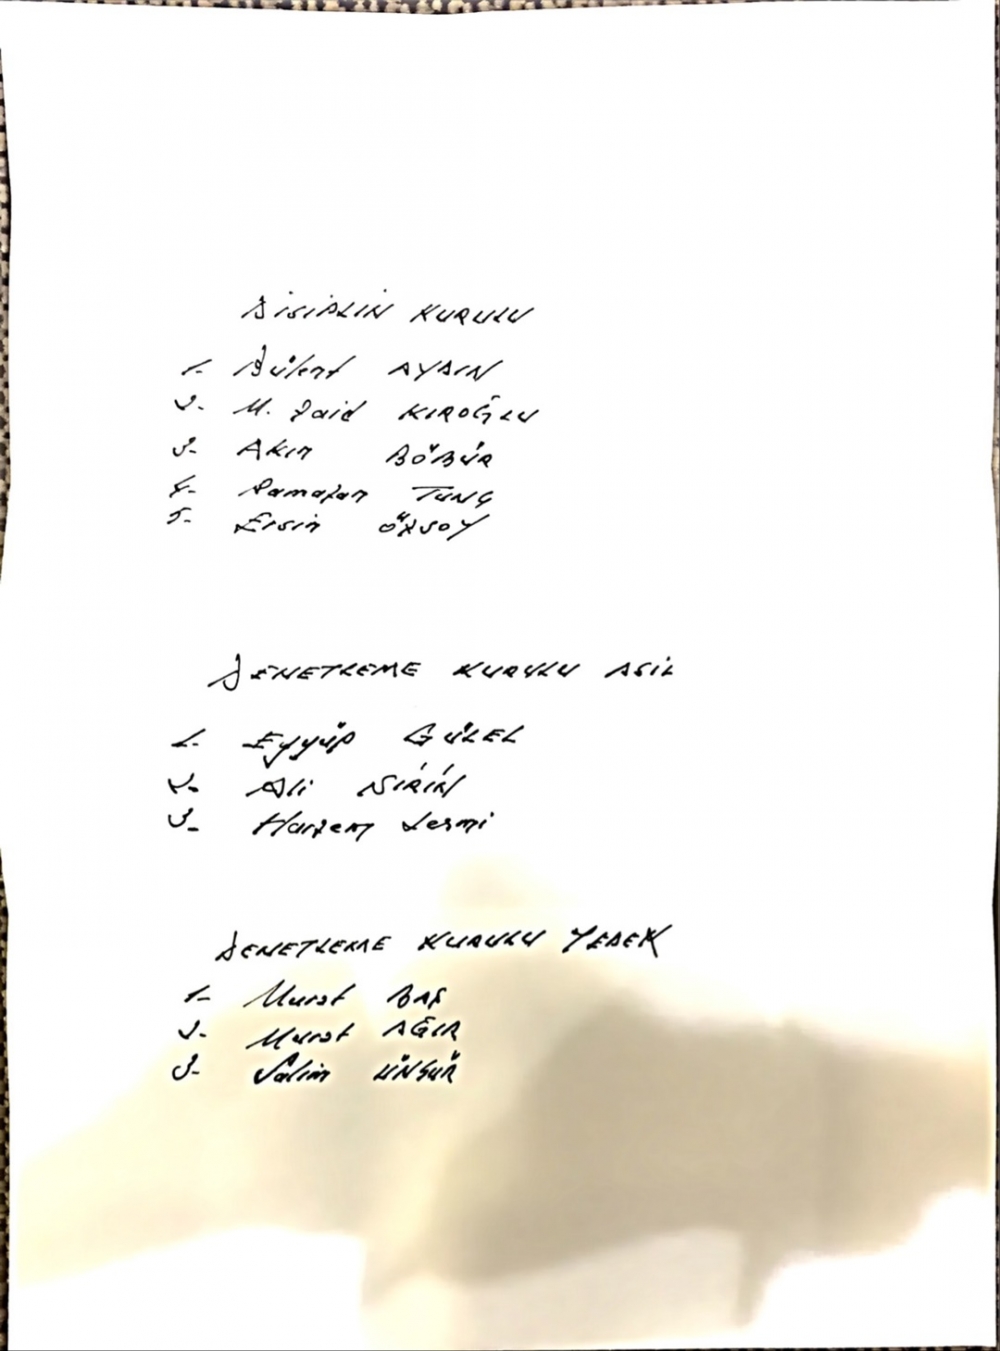 DİSİPLİN KURULU
1- Bülent AYDIN
2- M. Said KIROĞLU
3- Akın BÖBÜR
4- Ramazan TUNÇ
5- Ersin ÖZSOY
DENETLEME KURULU ASİL
1- Eyyüp GÜZEL
2- Ali
3-
DENETLEME KURULU YEDEK
1- Murat BAŞ
2- Murat AĞIR
3- Salim